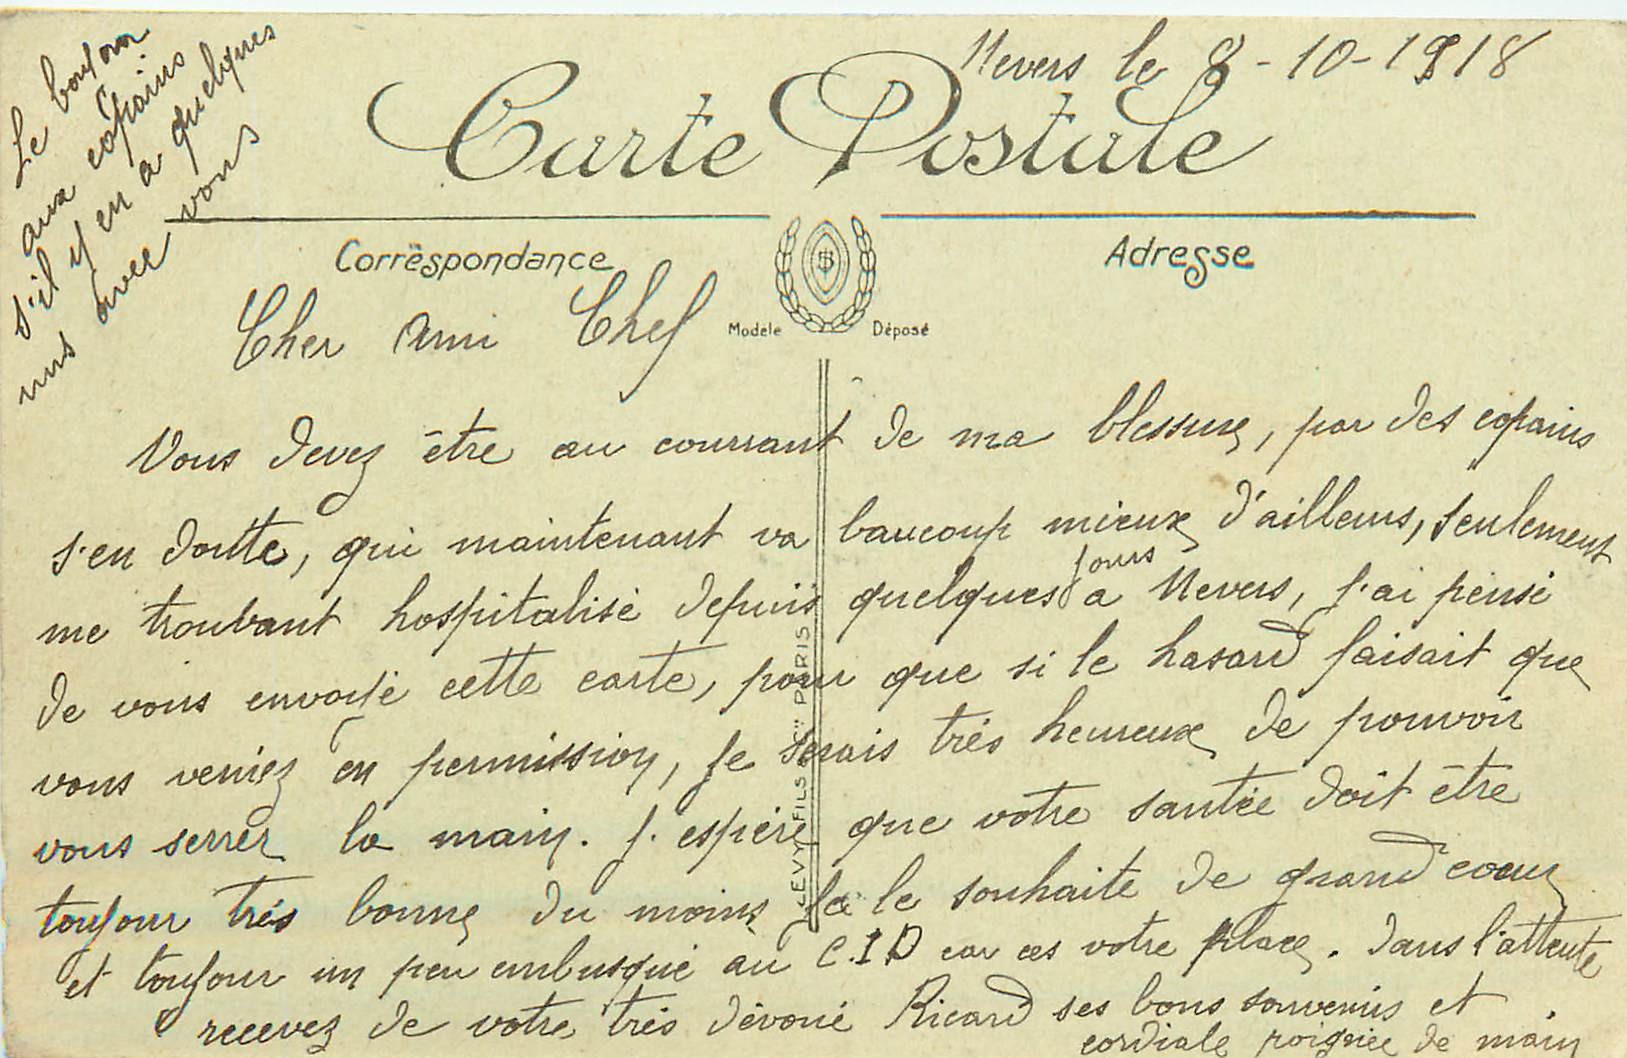 Nevers le 8-10-1918
Carte Postale
Correspondance
Adresse
Modèle
Déposé
LEVY FILS & Cie PARIS
Le boujour
aux copains
s'il y en a quelques
uns avec vous
Cher Ami Chef
Vous devez être au courrant de ma blessure, par des copains
s'en doutte, qui maintenant va baucoup mieux d'ailleurs, seulement
me trouvant hospitalisé depuis quelques jours a Nevers, j'ai pensé
de vous envoyé cette carte, pour que si le hasard faisait que
vous veniez en permission, je serais très heureux de pouvoir
vous serrer la main. j. espère que votre santée doit être
toujour très bonne du moins je le souhaite de grand coeur
et toujour un peu embusqué au C.I.D car ces votre place. Dans l'attente
recevez de votre très dévoué Ricard ses bons souvenirs et
cordiale poignée de main